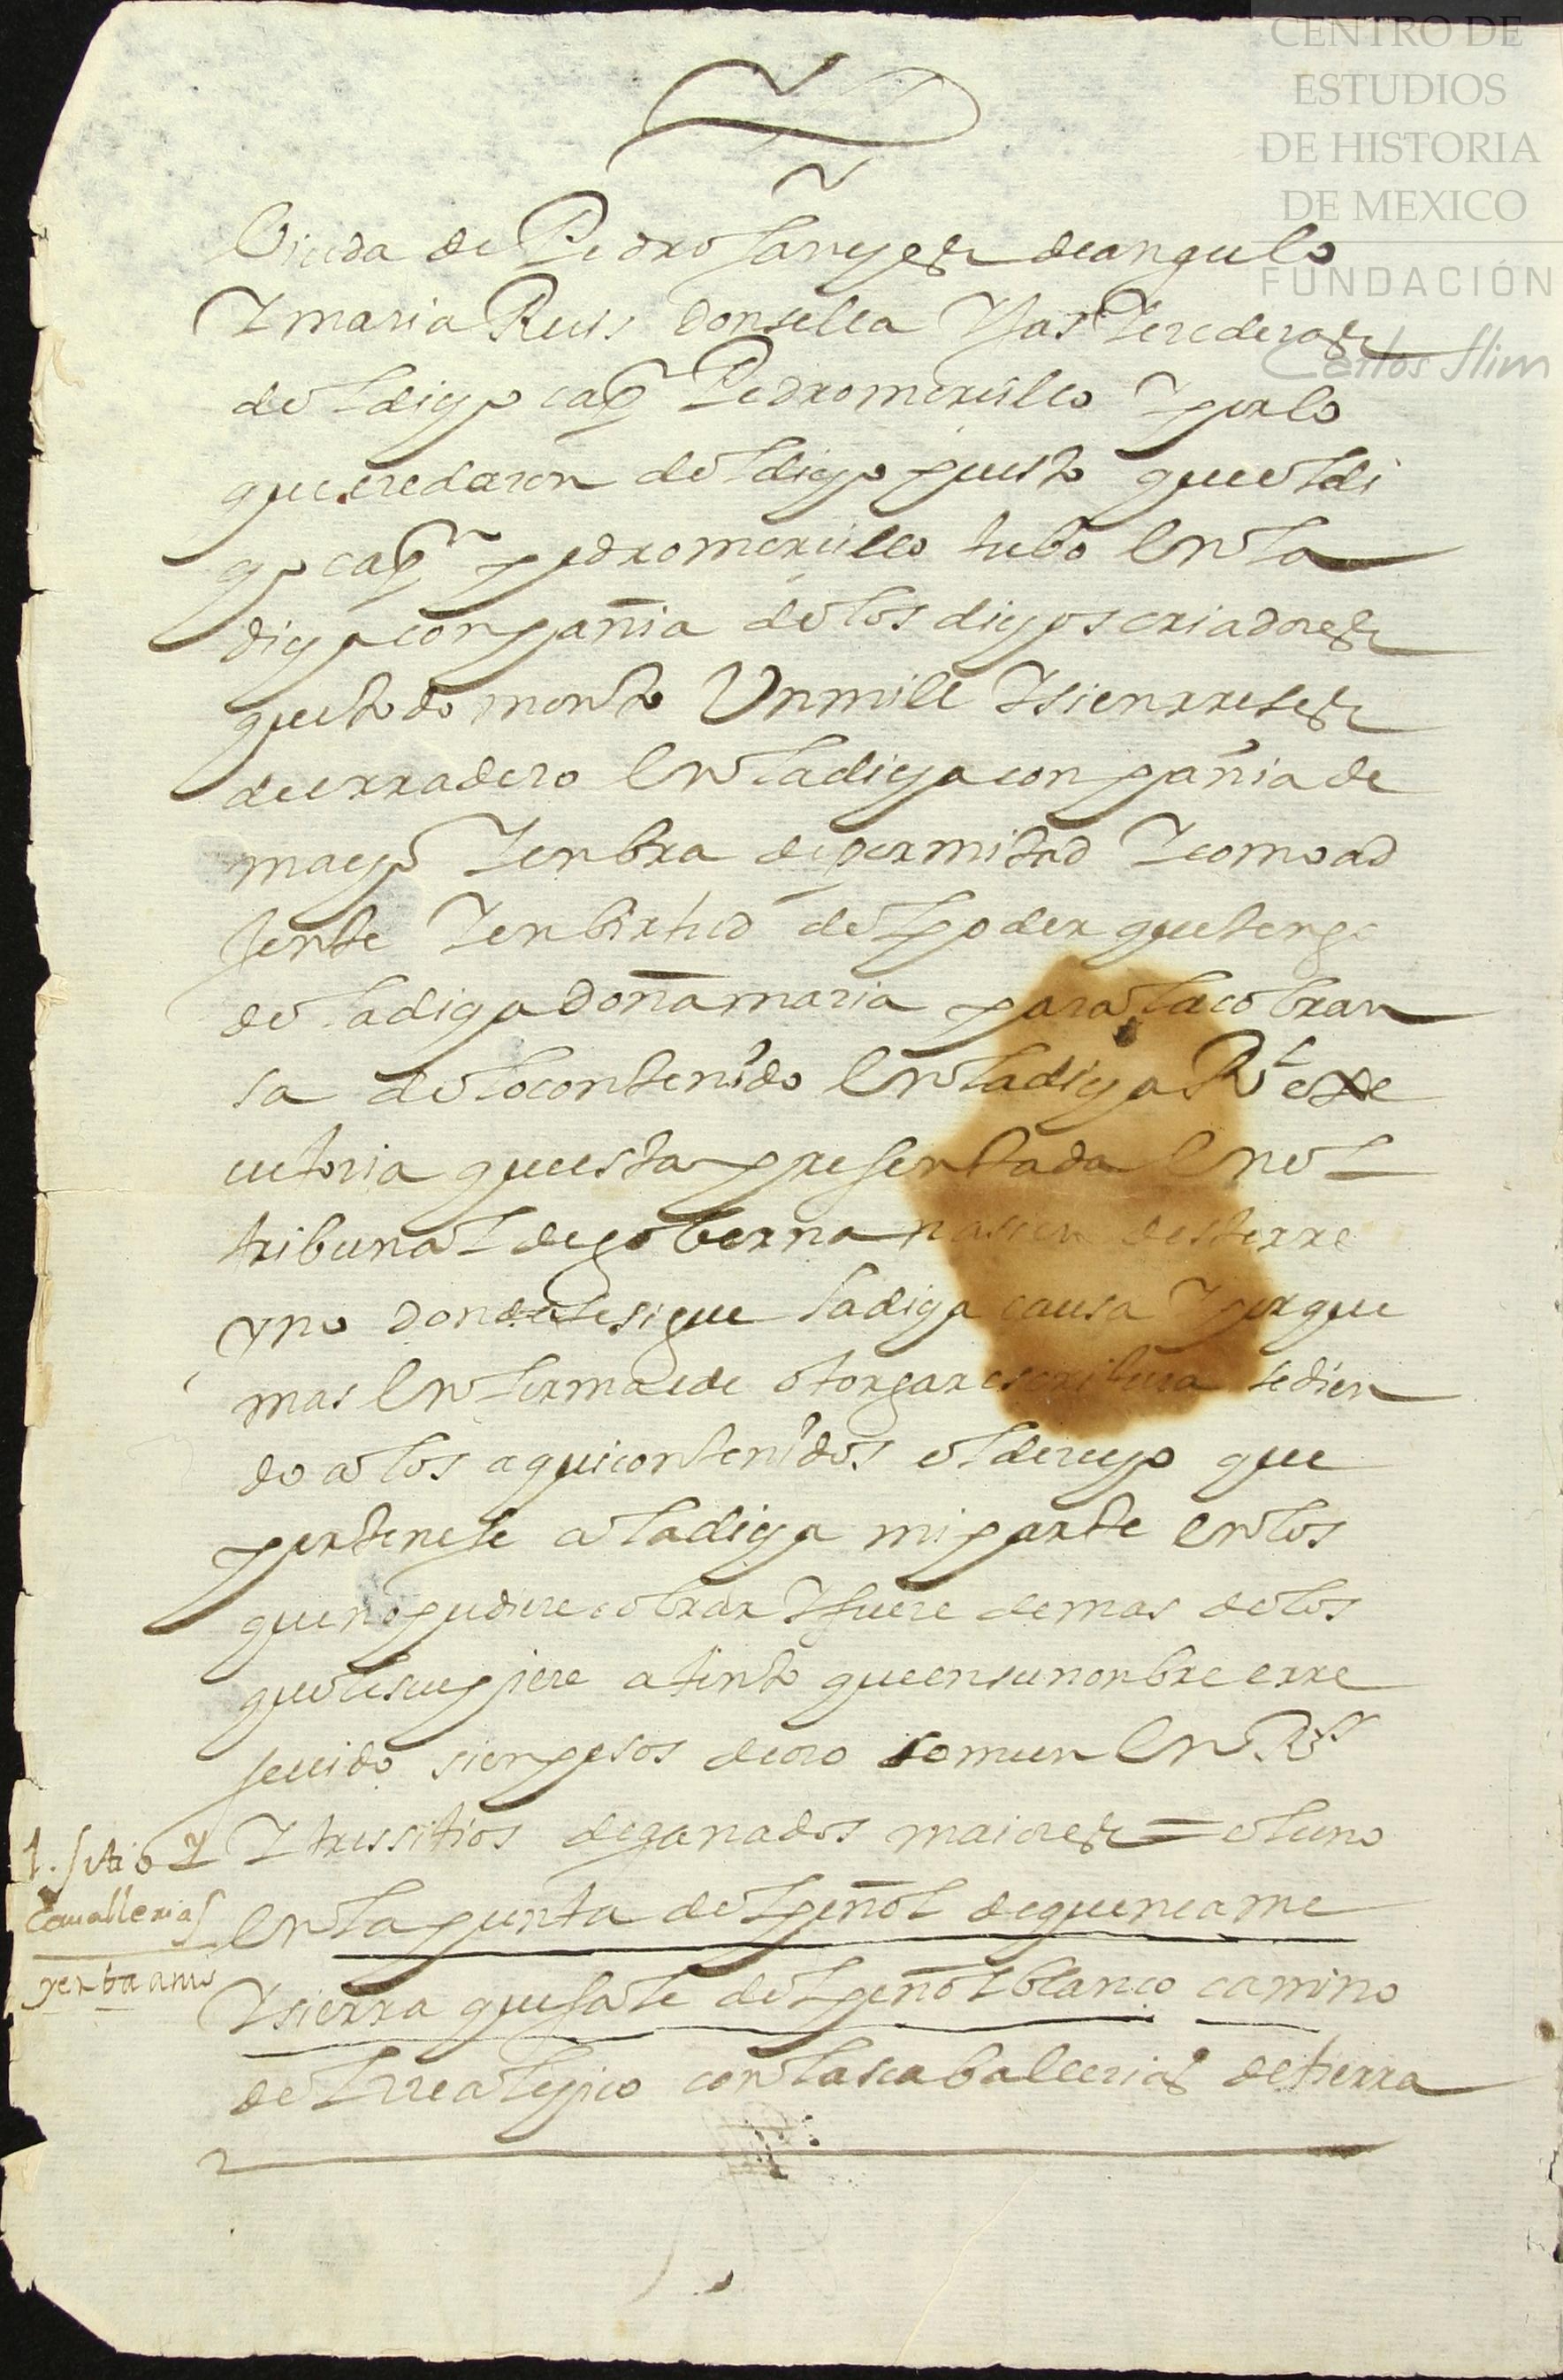 CENTRO DE
ESTUDIOS
DE HISTORIA
DE MEXICO
FUNDACIÓN
Carlos Slim
biuda de Pedro sanches de angulo
Y maria Ruis donsella Y las erederas
del dicho capn Pedro morcillo Y por lo
que eredaron del dicho puesto que el di
cho capn pedro morcillo tubo En la
dicha conpañia de los dichos criadores
que todo monto Un mill Y sien rreses
de erradero En la dicha conpañia de
macho Y enbra de por mitad Y como ad
sente Y en birtud del poder que tengo
de la dicha doña maria para la cobran
sa de lo contenido En la dicha Rl exe
cutoria que esta presentada En el
tribunal de goberna deste rre
yno donde se sigue la dicha causa Y por que
mas En forma e de otorgar escritura sedien
do a los aqui contenidos el derecho que
pertenese a la dicha mi parte En los
que no pudiere cobrar Y fuere demas de los
que le cupiere atento que en su nonbre e rre
seuido sien pesos de oro comun En Rs
Y tres sitios de ganados maiores = el uno
1. sitio y
cauallerias
En la punta del peñol de
Y sierra que sale del peñol blanco camino
del con las caballerias de tierra